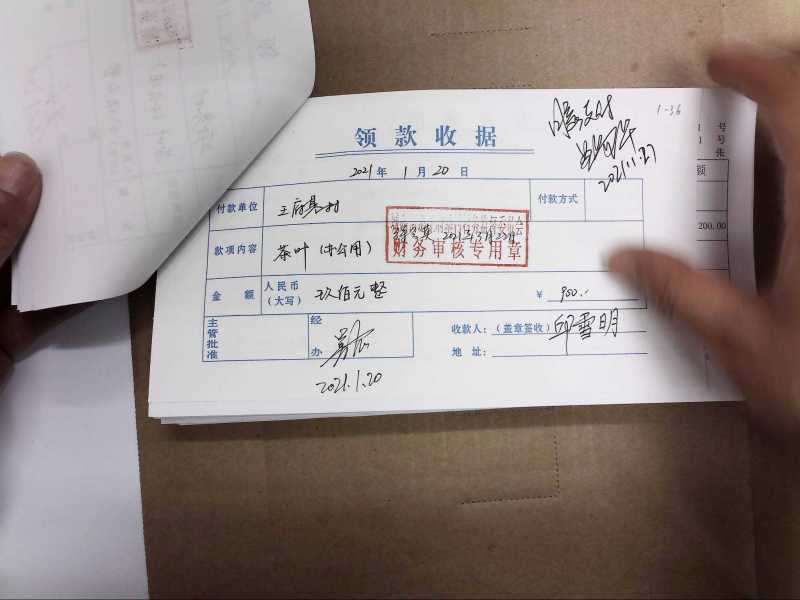 1-36
领款收据
2021年 1月20日
2021.1.27
号
号
张
额
200.00
付款单位 王府基村 付款方式
款项内容 茶叶(办公用)
财务审核专用章
金额 人民币(大写) 玖佰元整 ¥ 900.-
主管批准 经办
收款人:(盖章签收) 邱雪明
地址:
2021.1.20